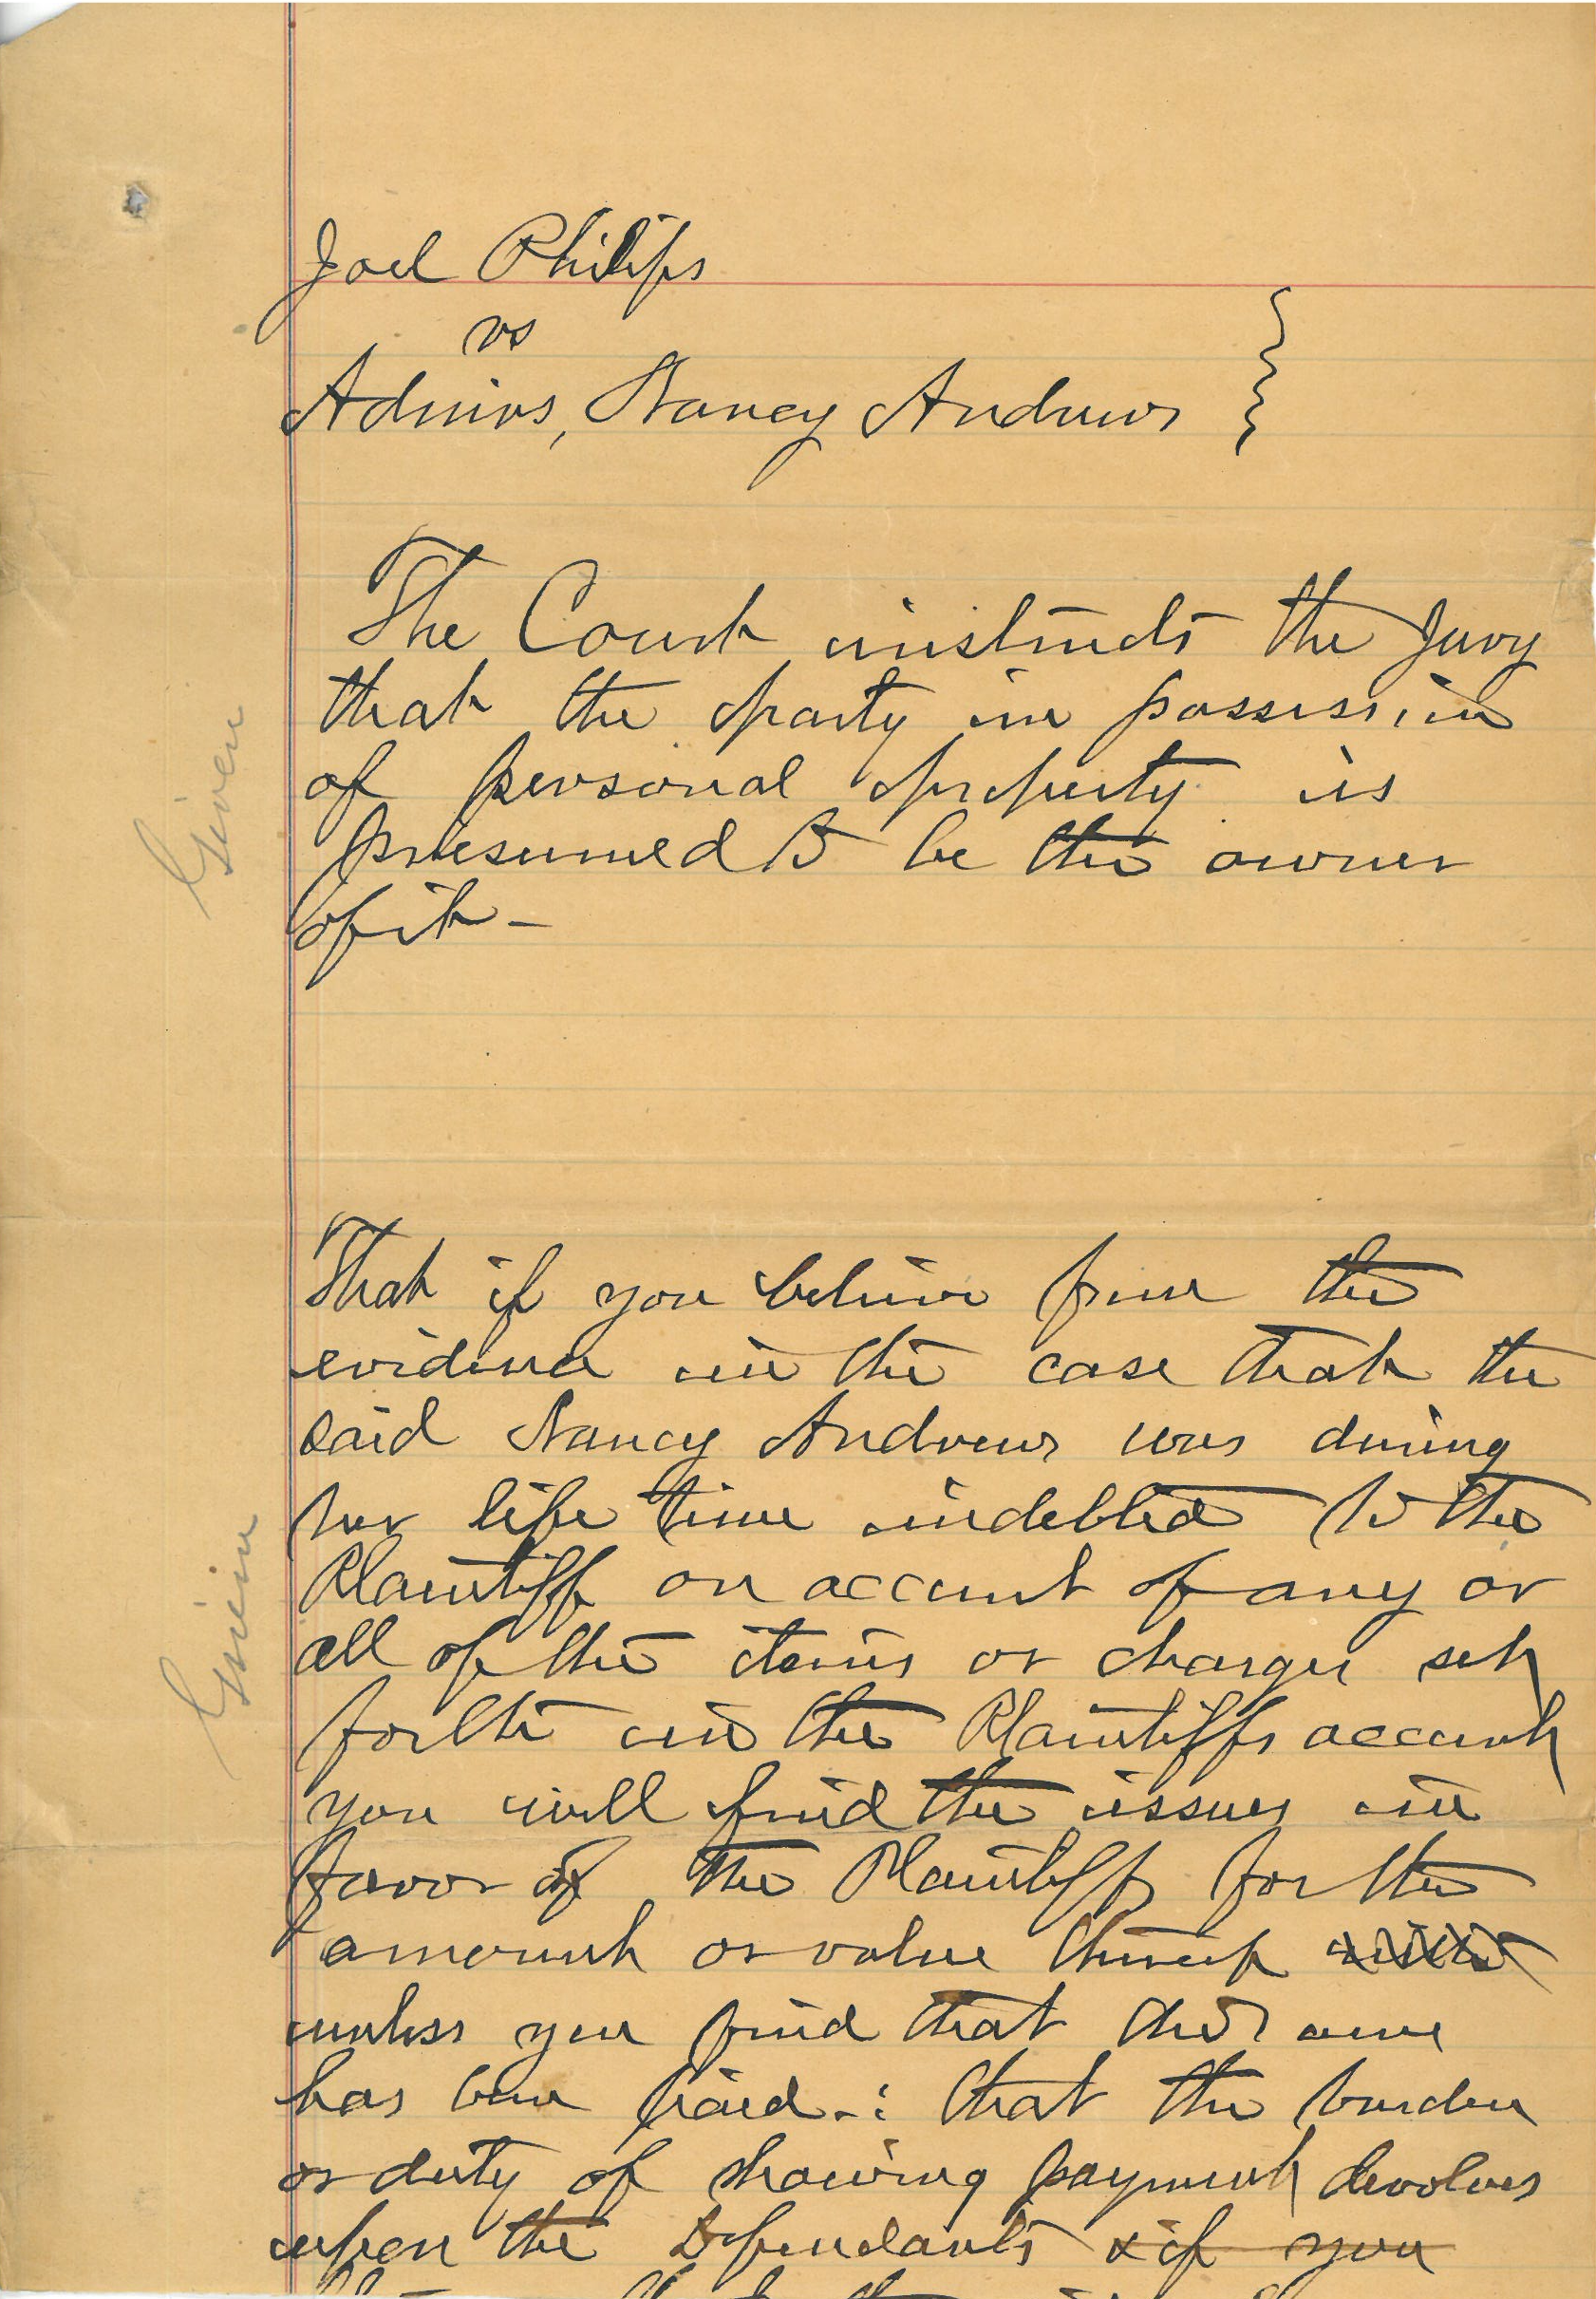 Joel Philips
vs
Admins, Nancy Andrews
The Court instructs the Jury
that the party in possession
of personal property is
presumed to be the owner
of it -
Given
That if you believe from the
evidence in the case that the
said Nancy Andrews was during
her life time indebted to the
Plaintiff on account of any or
all of the items or charges set
forth in the Plaintiffs account
you will find the issues in
favor of the Plaintiff for the
amount or value thereof
unless you find that the same
has been paid -: that the burden
or duty of showing payment devolves
upon the Defendants & if you
Given